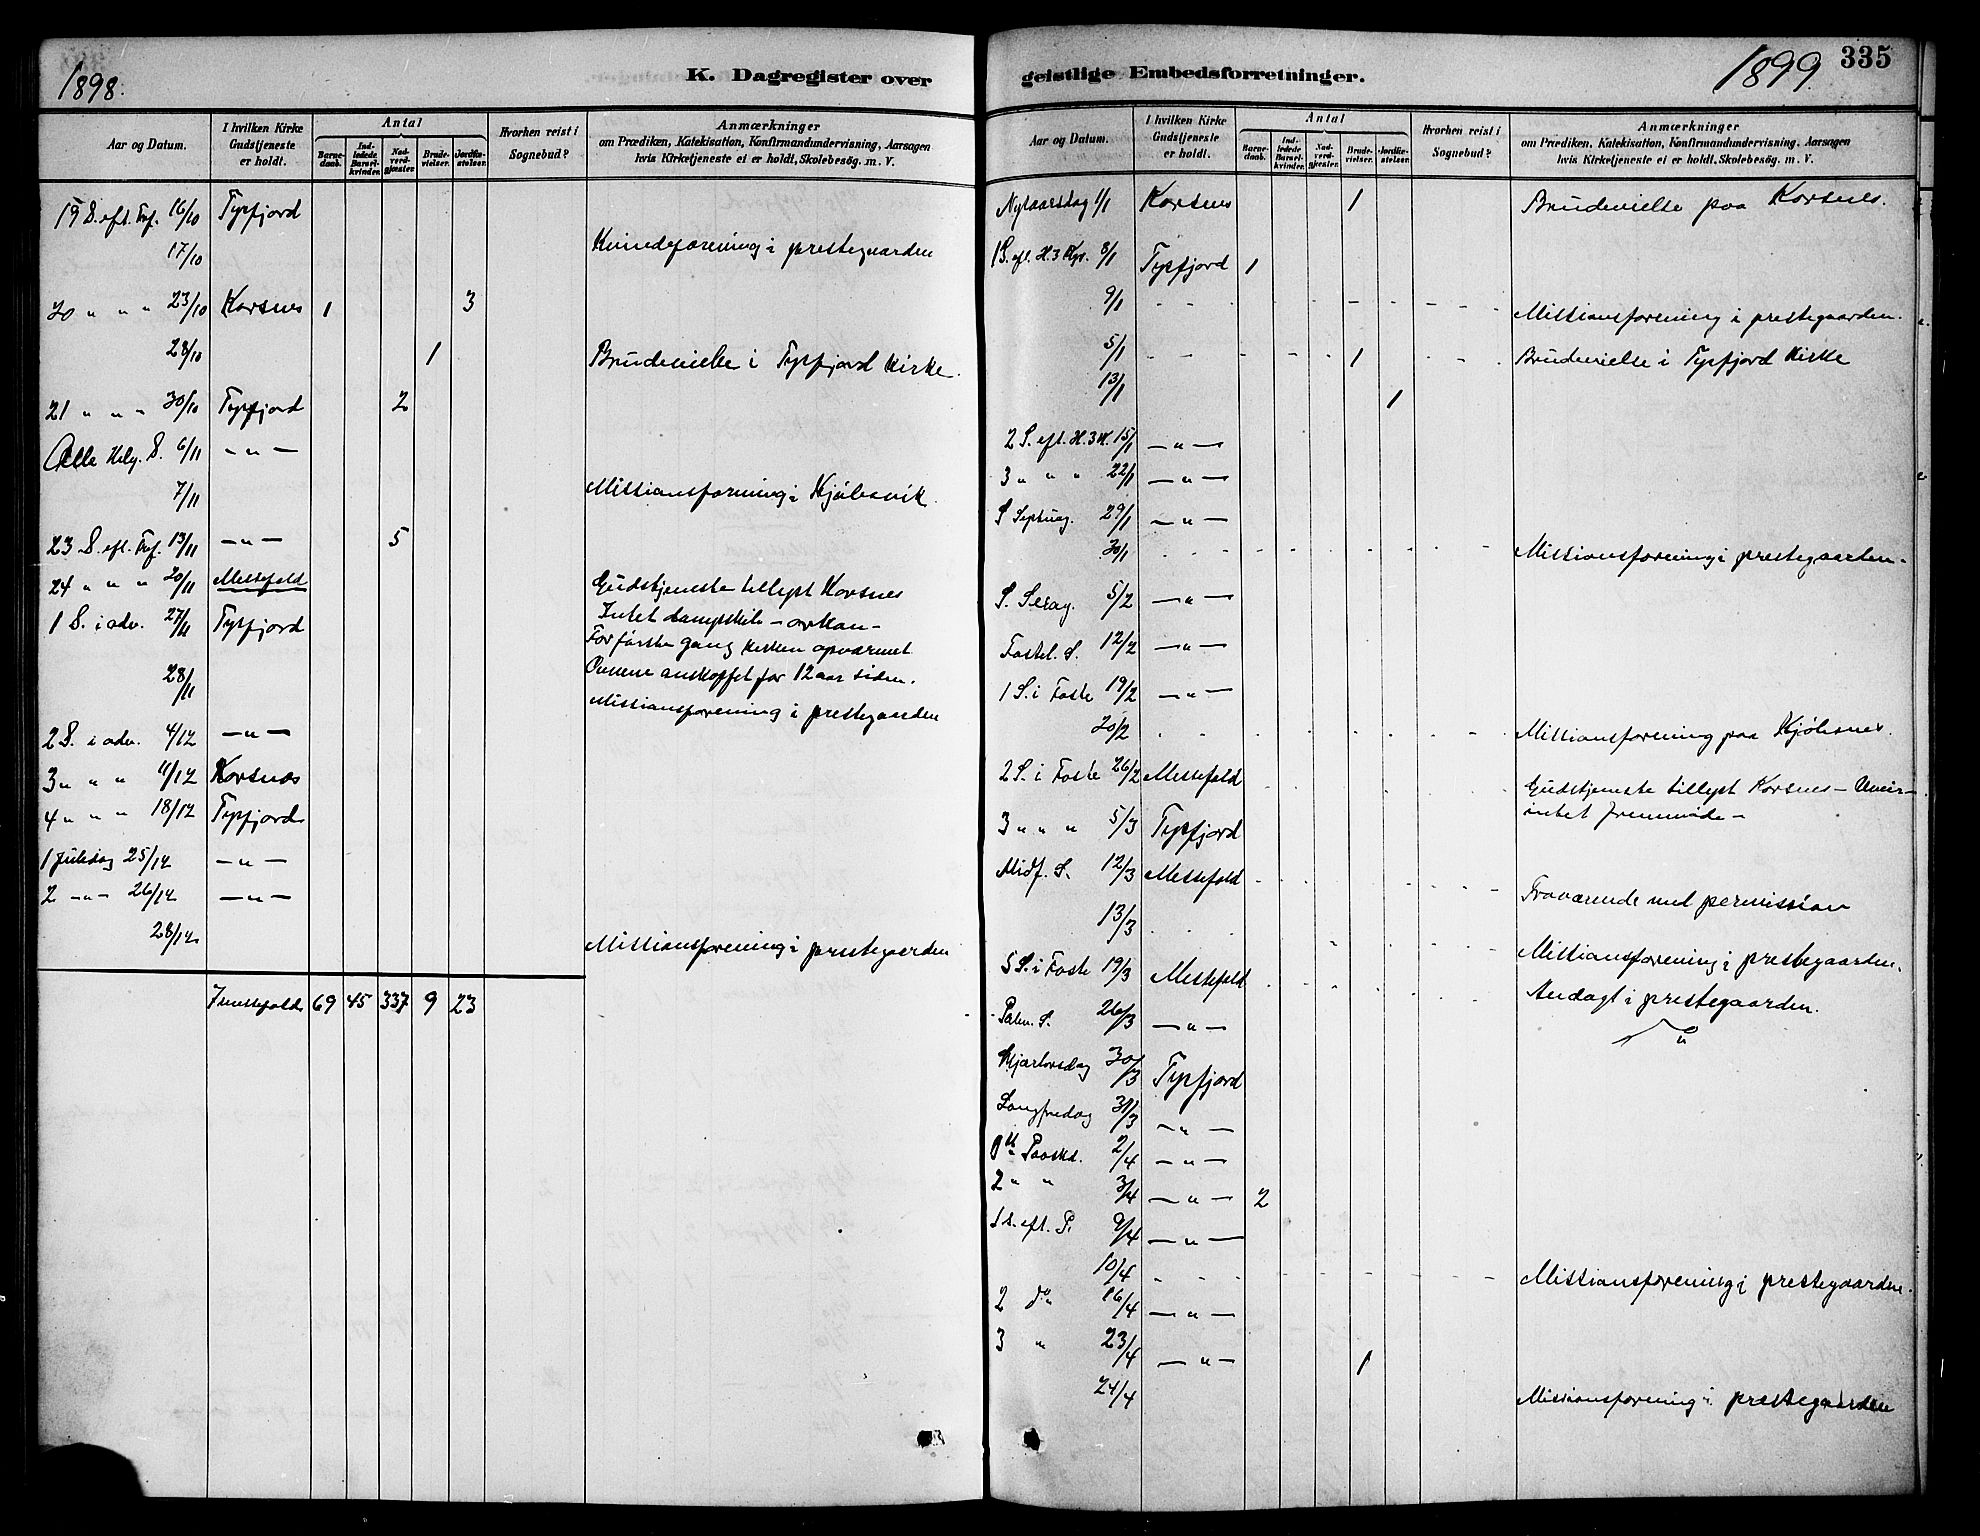 1898.
K. Dagregister over
Aar og Datum.
I hvilken Kirke Gudstjeneste er holdt.
Antal
Barnedaab.
Indledede Barselkvinder.
Nadverdgjester.
Brudevielser.
Jordfæstelser.
Hvorhen reist i Sognebud?
Anmærkninger
om Prædiken, Katekisation, Konfirmandundervisning, Aarsagen
hvis Kirketjeneste ei er holdt, Skolebesøg. m. V.
19 S. eft. Tref. 16/10 Tysfjord
17/10 Kvindeforening i prestegaarden
20 " " " 23/10 Korsnes 1 3
28/10 1 Brudevielse i Tysfjord Kirke.
21 " " " 30/10 Tysfjord 2
Alle Helg. S. 6/11 - " -
7/11 Missionsforening i Kjöbsvik.
23 S. eft. Tref. 13/11 - " - 5
24 " " " 20/11 Messefald Gudstjeneste tillyst Korsnes
Intet dampskib - orkan -
1 S. i adv. 27/11 Tysfjord For förste gang kirken opvarmet.
Ovnene anskaffet for 12 aar siden.
28/11 Missionsforening i prestegaarden
2 S. i adv. 4/12 - " -
3 " " " 11/12 Korsnæs
4 " " " 18/12 Tysfjord
1 Juledag 25/12 - " -
2 - " - 26/12 - " -
28/12 Missionsforening i prestegaarden
7 messefald 69 45 337 9 23
geistlige Embedsforretninger.
1899.
335
Aar og Datum.
I hvilken Kirke Gudstjeneste er holdt.
Antal
Barnedaab.
Indledede Barselkvinder.
Nadverdgjester.
Brudevielser.
Jordfæstelser.
Hvorhen reist i Sognebud?
Anmærkninger
om Prædiken, Katekisation, Konfirmandundervisning, Aarsagen
hvis Kirketjeneste ei er holdt, Skolebesøg. m. V.
Nytaarsdag 1/1 Korsnes 1 Brudevielse paa Korsnes.
1 S. eft. H. 3 Kgr. 8/1 Tysfjord 1
9/1 Missionsforening i prestegaarden.
5/1 1 Brudevielse i Tysfjord Kirke
13/1 1
2 S. eft. H. 3 K. 15/1 - " -
3 " " " 22/1 - " -
S Septuag. 29/1 - " -
30/1 Missionsforening i prestegaarden -
S. Sexag. 5/2 - " -
Fastel. S. 12/2 - " -
1 S. i Faste 19/2 - " -
20/2 Missionsforening paa Kjöbsnes.
2 S. i Faste 26/2 Messefald Gudstjeneste tillyst Korsnes - Uveir -
intet fremmöde -
3 " " " 5/3 Tysfjord
Midf. S. 12/3 Messefald Fraværende med permission
13/3 Missionsforening i prestegaarden.
5 S. i Faste 19/3 Messefald Andagt i prestegaarden.
Palm. S. 26/3 - " - "
Skjærtorsdag 30/3 Tysfjord
Langfredag 31/3 - " -
1ste Paaskd. 2/4 - " -
2 " " 3/4 - " - 2
1 S. eft. P. 9/4 - " -
10/4 Missionsforening i prestegaarden.
2 do 16/4 - " -
3 " 23/4 - " - 1
24/4 Missionsforening i prestegaarden